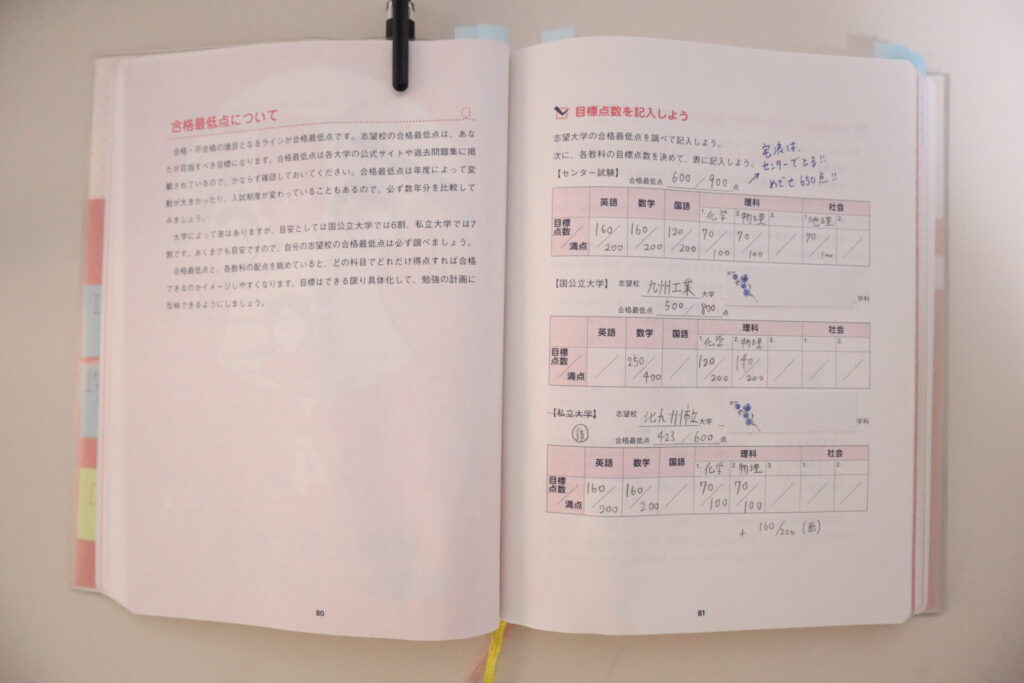 合格最低点について
合格・不合格の境目となるラインが合格最低点です。志望校の合格最低点は、あな
たが目指すべき目標になります。合格最低点は各大学の公式サイトや過去問題集に掲
載されているので、かならず確認しておいてください。合格最低点は年度によって変
動が大きかったり、入試制度が変わっていることもあるので、必ず数年分を比較して
みましょう。
大学によって差はありますが、目安としては国公立大学では6割、私立大学では7
割です。あくまでも目安ですので、自分の志望校の合格最低点は必ず調べましょう。
合格最低点と、各教科の配点を眺めていると、どの科目でどれだけ得点すれば合格
できるのかイメージしやすくなります。目標はできる限り具体化して、勉強の計画に
反映できるようにしましょう。
80
目標点数を記入しよう
志望大学の合格最低点を調べて記入しよう。
次に、各教科の目標点数を決めて、表に記入しよう。
宅浪は、
センターでとる!!
めざせ650点!!
【センター試験】 合格最低点 600/900点
英語 数学 国語 理科 社会
1.化学 2.物理 3. 1.地理 2.
目標点数/満点 160/200 160/200 120/200 70/100 70/100 / 70/100 /
【国公立大学】 志望校 九州工業大学 学科
合格最低点 500/800点
英語 数学 国語 理科 社会
1.化学 2.物理 3. 1. 2.
目標点数/満点 / 250/400 / 120/200 140/200 / / /
【私立大学】 志望校 北九州市立大学 学科
後 合格最低点 423/600点
英語 数学 国語 理科 社会
1.化学 2.物理 3. 1. 2.
目標点数/満点 160/200 160/200 / 70/100 70/100 / / /
+ 160/200 (面)
81